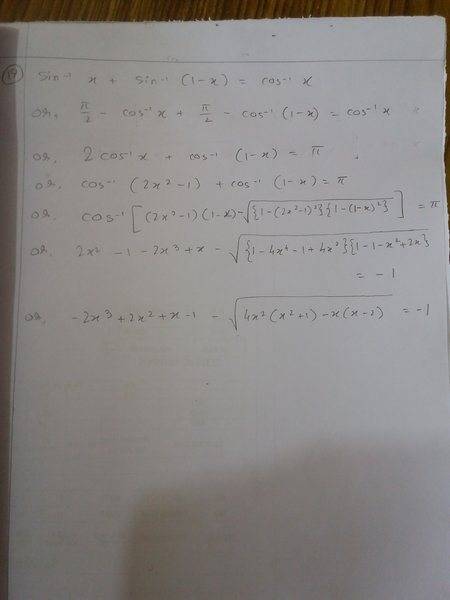 19 sin⁻¹ x + sin⁻¹ (1-x) = cos⁻¹ x
or, π/2 - cos⁻¹ x + π/2 - cos⁻¹ (1-x) = cos⁻¹ x
or, 2 cos⁻¹ x + cos⁻¹ (1-x) = π
or, cos⁻¹ (2x²-1) + cos⁻¹ (1-x) = π
or, cos⁻¹ [(2x²-1)(1-x) - √{1-(2x²-1)²}{1-(1-x)²}] = π
or, 2x² - 1 - 2x³ + x - √{1-4x⁴-1+4x²}{1-1-x²+2x}
= -1
or, -2x³ + 2x² + x - 1 - √4x²(x²+1) - x(x-2) = -1